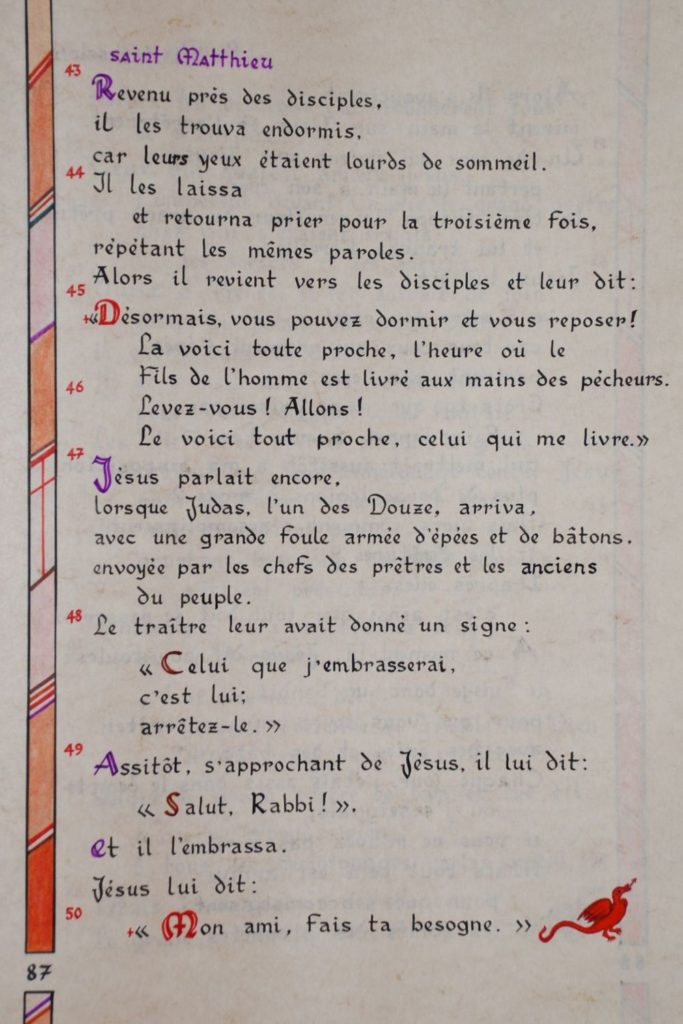 saint Matthieu
43
Revenu près des disciples,
il les trouva endormis,
car leurs yeux étaient lourds de sommeil.
44
Il les laissa
et retourna prier pour la troisième fois,
répétant les mêmes paroles.
45
Alors il revient vers les disciples et leur dit:
+«Désormais, vous pouvez dormir et vous reposer!
La voici toute proche, l'heure où le
Fils de l'homme est livré aux mains des pécheurs.
46
Levez-vous! Allons!
Le voici tout proche, celui qui me livre.»
47
Jésus parlait encore,
lorsque Judas, l'un des Douze, arriva,
avec une grande foule armée d'épées et de bâtons.
envoyée par les chefs des prêtres et les anciens
du peuple.
48
Le traître leur avait donné un signe:
« Celui que j'embrasserai,
c'est lui;
arrêtez-le. »
49
Assitôt, s'approchant de Jésus, il lui dit:
« Salut, Rabbi! ».
et il l'embrassa.
Jésus lui dit:
50
+« Mon ami, fais ta besogne. »
87